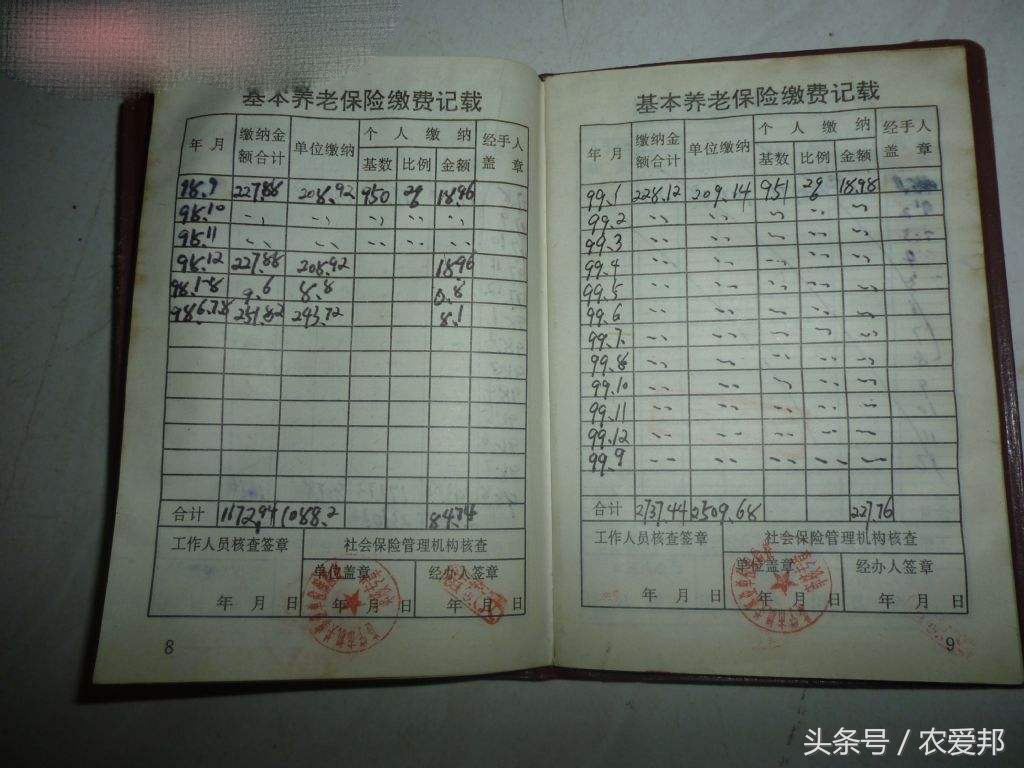 基本养老保险缴费记载
年 月 缴纳金额合计 单位缴纳 个 人 缴 纳 经手人盖 章
基数 比例 金额
98.9 227.88 208.92 950 2% 18.96
98.10 〃 〃 〃 〃 〃
98.11 〃 〃 〃 〃 〃
98.12 227.88 208.92 18.96
98.1-8 9.6 8.8 0.8
98.6.7.8 251.82 243.72 8.1
合计 1172.94 1088.2 84.74
工作人员核查签章 社会保险管理机构核查
单位盖章 经办人签章
年 月 日 年 月 日 年 月 日
8
基本养老保险缴费记载
年 月 缴纳金额合计 单位缴纳 个 人 缴 纳 经手人盖 章
基数 比例 金额
99.1 228.12 209.14 951 2% 18.98
99.2 〃 〃 〃 〃 〃
99.3 〃 〃 〃 〃 〃
99.4 〃 〃 〃 〃 〃
99.5 〃 〃 〃 〃 〃
99.6 〃 〃 〃 〃 〃
99.7 〃 〃 〃 〃 〃
99.8 〃 〃 〃 〃 〃
99.10 〃 〃 〃 〃 〃
99.11 〃 〃 〃 〃 〃
99.12 〃 〃 〃 〃 〃
99.9 〃 〃 〃 〃 〃
合计 2737.44 2509.68 227.76
工作人员核查签章 社会保险管理机构核查
单位盖章 经办人签章
年 月 日 年 月 日 年 月 日
9
头条号 / 农爱邦